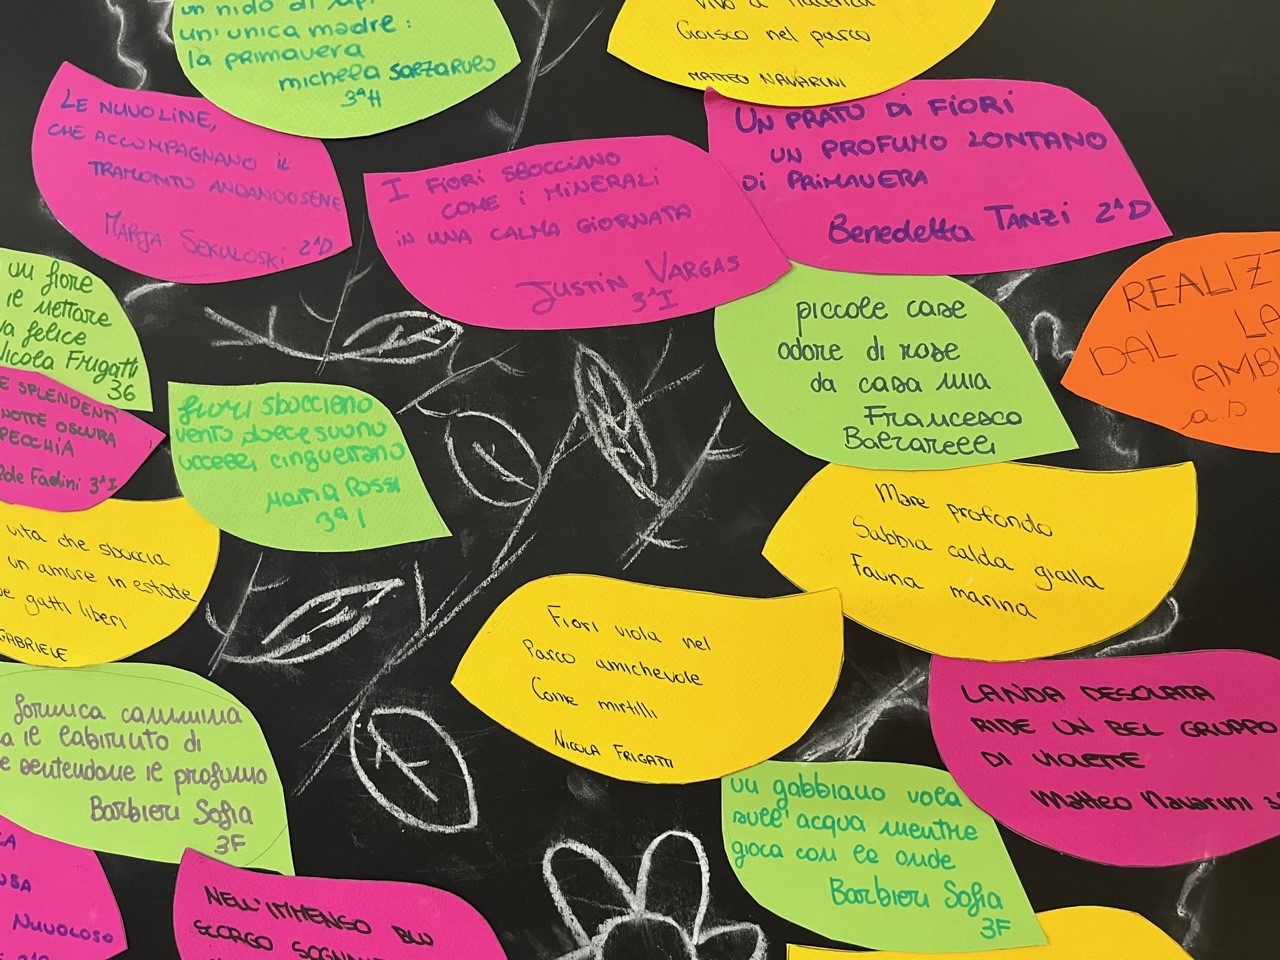 un nido di
un'unica madre:
la primavera
michela
3ªH
Gioisco nel parco
MATTEO NAVARINI
LE NUVOLINE,
CHE ACCOMPAGNANO IL
TRAMONTO ANDANDOSENE
MARJA SEKULOSKI 2ªD
I FIORI SBOCCIANO
COME I MINERALI
IN UNA CALMA GIORNATA
JUSTIN VARGAS
3ªI
UN PRATO DI FIORI
UN PROFUMO LONTANO
DI PRIMAVERA
Benedetta TANZI 2ªD
un fiore
felice
Nicola Frigatti
36
piccole case
odore di rose
da casa mia
Francesco
REALIZ
DAL LA
AMB
SPLENDENTI
NOTTE OSCURA
Fadini 3ªI
fiori sbocciano
vento dolce suono
uccelli cinguettano
Maria Rossi
3ªI
vita che sboccia
un amore in estate
gatti liberi
GABRIELE
Mare profondo
Sabbia calda gialla
Fauna marina
Fiori viola nel
Parco amichevole
Come mirtilli
NICOLA FRIGATTI
LANDA DESOLATA
RIDE UN BEL GRUPPO
DI VIOLETTE
Matteo Navarini
formica cammina
il labirinto di
sentendone il profumo
Barbieri Sofia
3F
un gabbiano vola
sull'acqua mentre
gioca con le onde
Barbieri Sofia
3F
NUVOLOSO
NELL'IMMENSO BLU
SCORGO